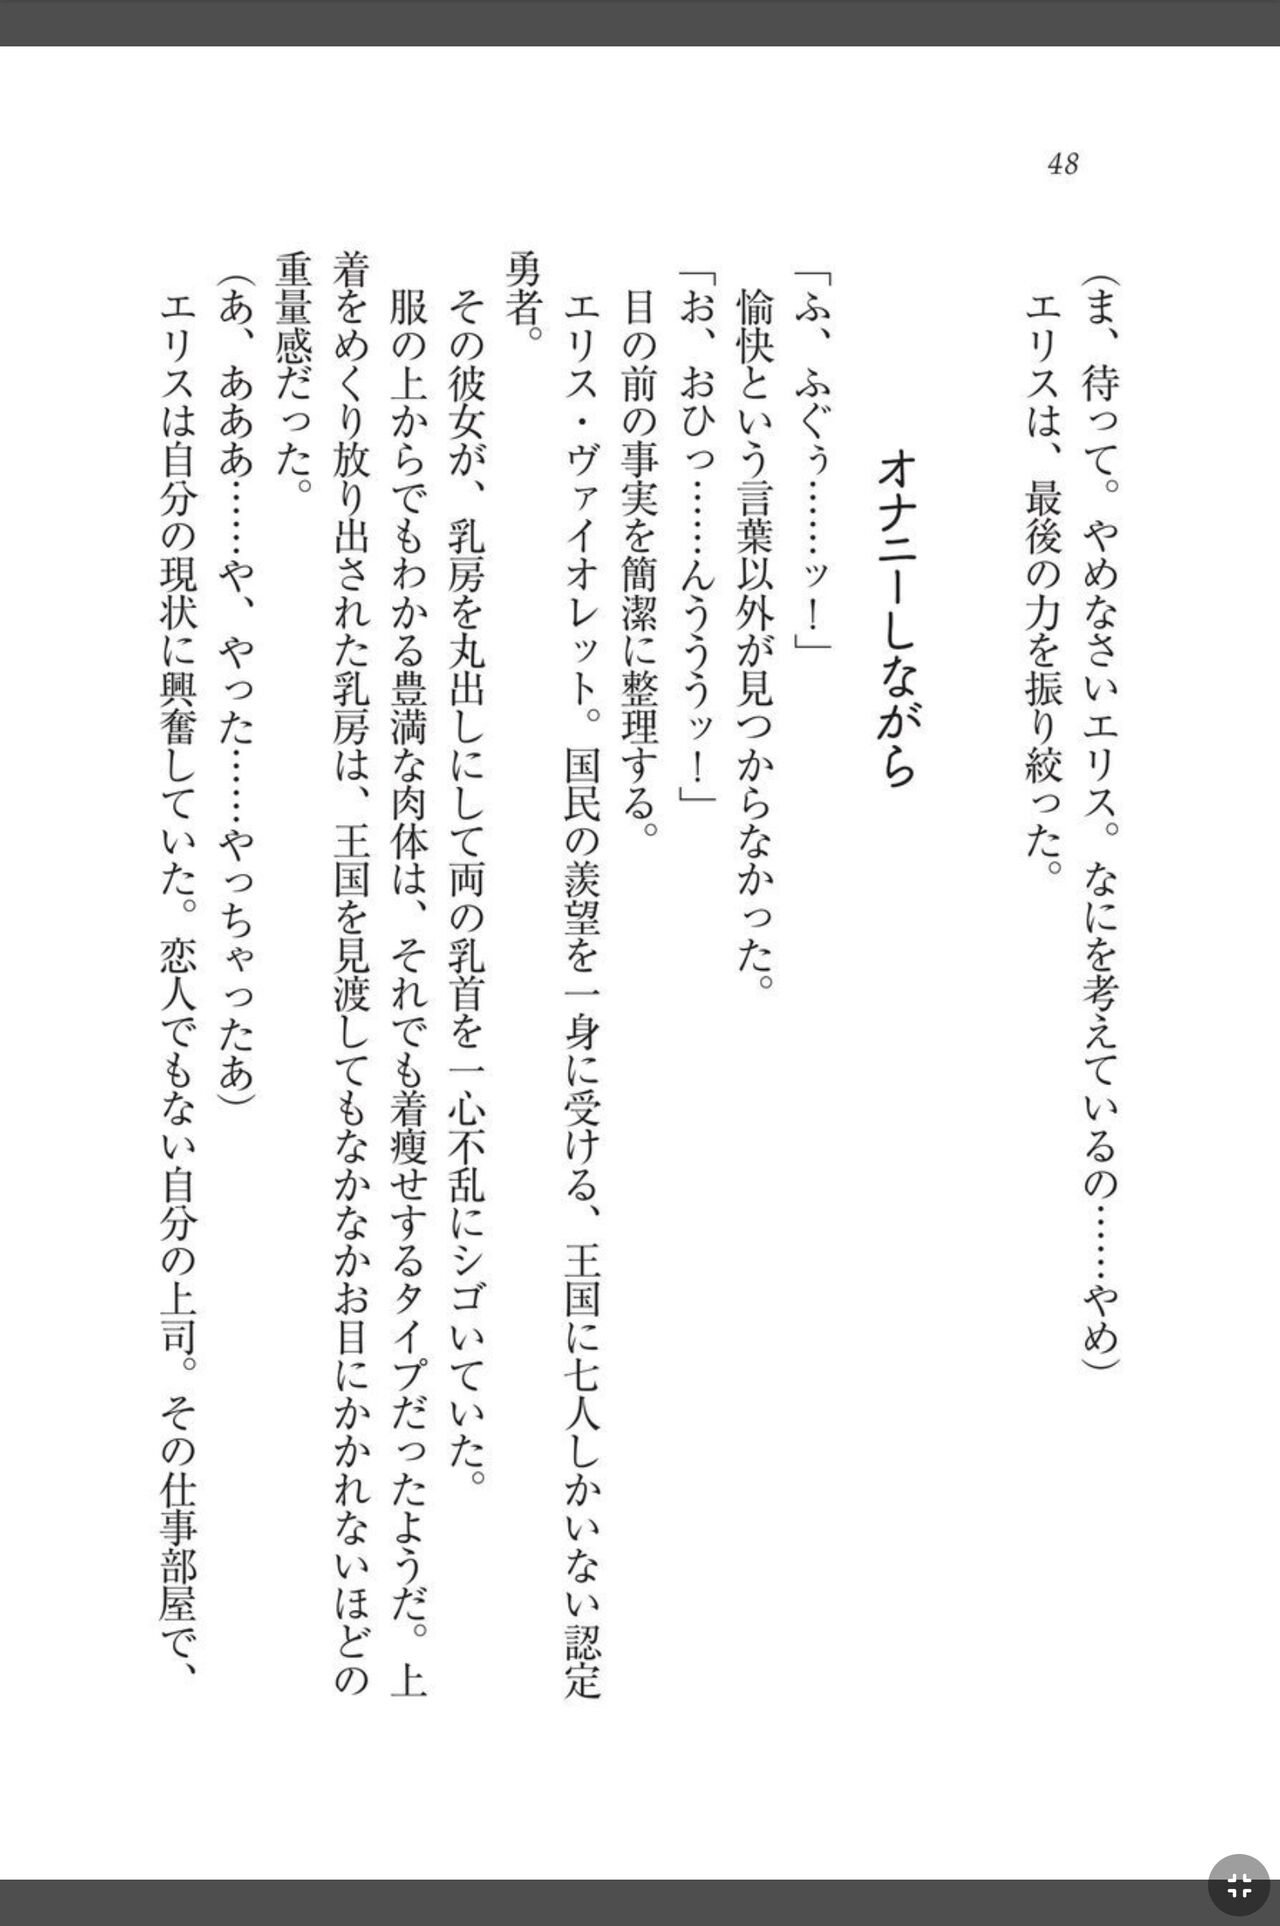 48
（ま、待って。やめなさいエリス。なにを考えているの……やめ）
エリスは、最後の力を振り絞った。
オナニーしながら
「ふ、ふぐぅ……ッ！」
愉快という言葉以外が見つからなかった。
「お、おひっ……んうううッ！」
目の前の事実を簡潔に整理する。
エリス・ヴァイオレット。国民の羨望を一身に受ける、王国に七人しかいない認定
勇者。
その彼女が、乳房を丸出しにして両の乳首を一心不乱にシゴいていた。
服の上からでもわかる豊満な肉体は、それでも着痩せするタイプだったようだ。上
着をめくり放り出された乳房は、王国を見渡してもなかなかお目にかかれないほどの
重量感だった。
（あ、あああ……や、やった……やっちゃったあ）
エリスは自分の現状に興奮していた。恋人でもない自分の上司。その仕事部屋で、